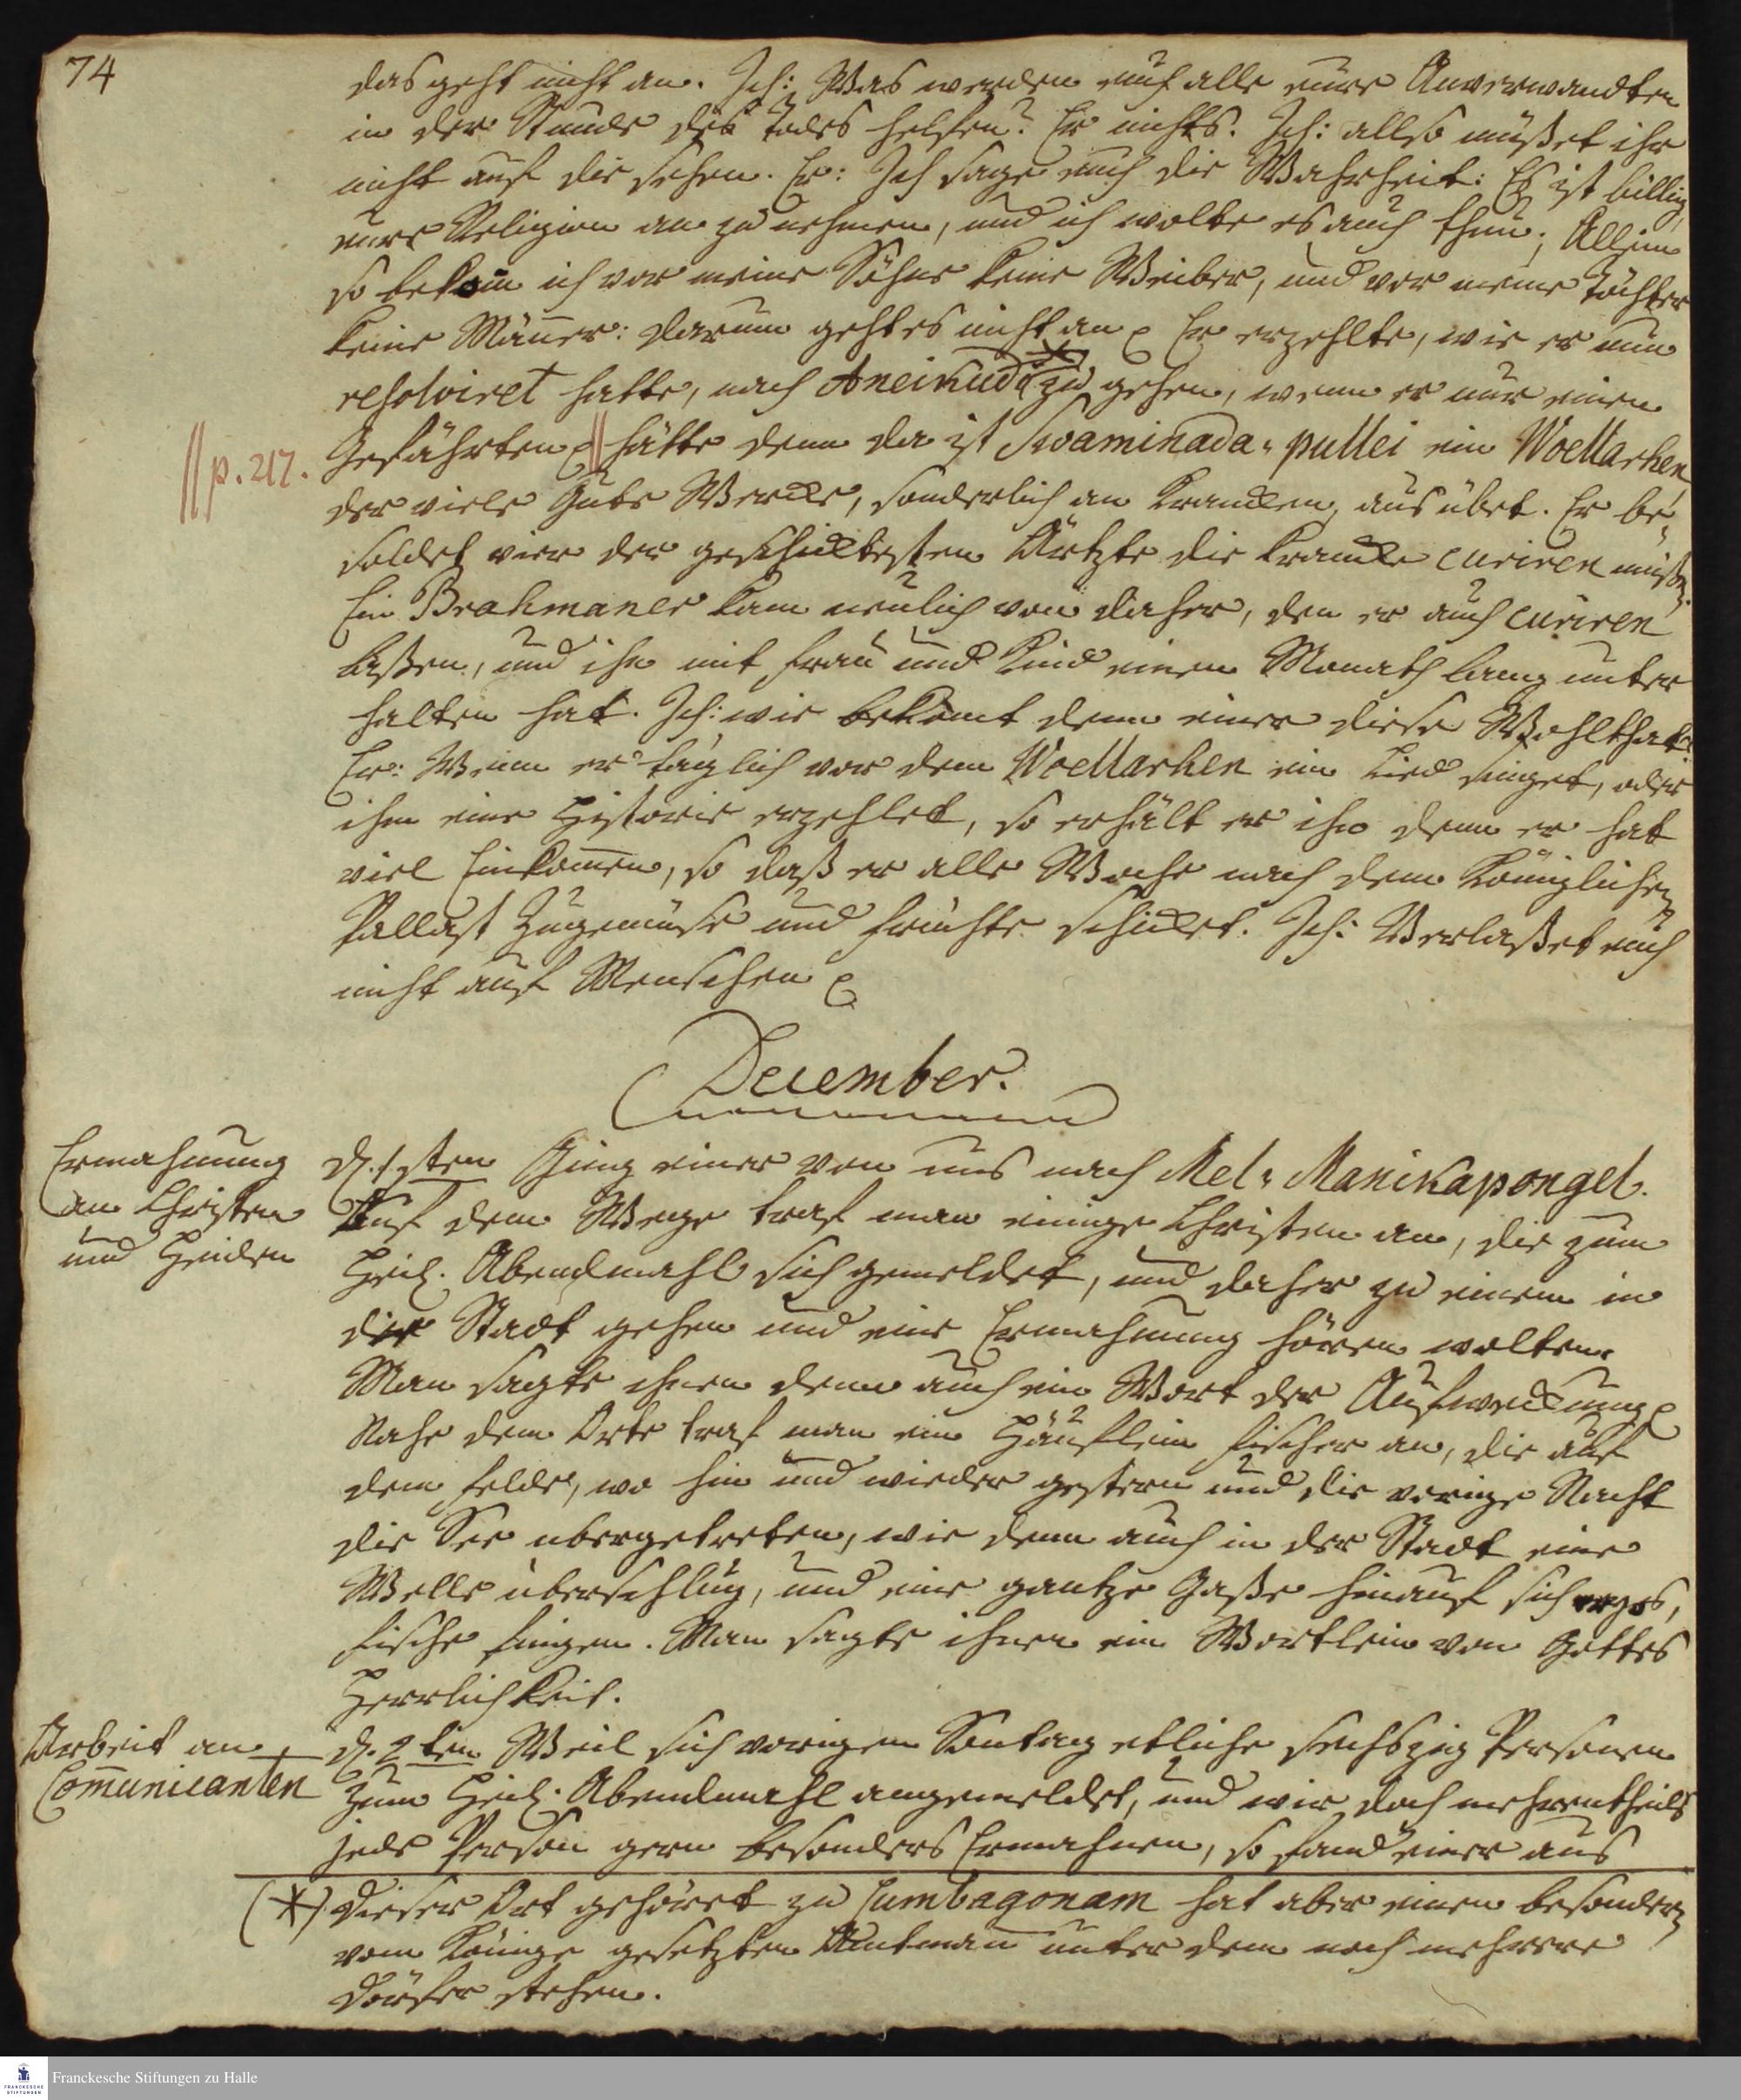 74
das geht nicht an. Ich: Was werden euch alle eure Anverwandten
in der Stunde des Todes helfen? Er nichts. Ich: also müßet ihr
nicht auf die sehen. Er: Ich sage euch die Wahrheit: Es ist billig,
eure Religion an zu nehmen, und ich wolte es auch thun; Allein
so bekom̄ ich vor meine Söhne keine Weiber, und vor meine Töchter
keine Män̄er: darum geht es nicht an. Er erzehlte, wie er nun
resolviret hatte, nach Aneikudi (*) zu gehen, wenn er nur einen
//p. 217. Gefährten // hätte denn da ist Swaminada-pullei ein Woellarhen,
der viele Gute Wercke, sonderlich an Krancken, aus übet. Er be-
soldet vier der geschicktesten Ärtzte die Krancke curiren müßen.
Ein Brahmaner kam neulich von daher, den er auch curiren
laßen, und ihn mit Frau und Kind einen Monath lang unter
halten hat. Ich: wie bekom̄t denn einer diese Wohlthat?
Er: Wenn er täglich vor dem Woellarhen ein Lied singet, oder
ihm eine Historie erzehlet, so erhält er ihn denn er hat
viel Einkom̄en, so daß er alle Woche nach dem Königlichen
Pallast Zugemüse und Früchte schicket. Ich: Verlaßet euch
nicht auf Menschen
December.
Ermahnung
an Christen
und Heiden
d. 1sten Ging einer von uns nach Mel-Manikapongel.
Auf dem Wege traf man einige Christen an, die zum
Heil. Abendmahl sich gemeldet, und daher zu einem in
der Stadt gehen und eine Ermahnung hören wolten.
Man sagte ihnen denn auch ein Wort der Aufweckung
Nahe dem Orte traf man ein Häuflein Fischer an, die auf
dem Felde, wo hin und wieder gestern und die vorige Nacht
die See übergetreten, wie denn auch in der Stadt eine
Welle überschlug, und eine gantze Gaße hinauf sich ergos,
Fische fingen. Man sagte ihnen ein Wörtlein von Gottes
Herrlichkeit.
Arbeit an
Com̄unicanten
d. 2ten Weil sich vorigen Sontag etliche sechszig Personen
zum Heil. Abendmahl angemeldet, und wir doch mehrentheils
jede Person gern besonders Ermahnen, so fand einer aus
(*) Dieser Ort gehöret zu Cumbagonam hat aber einen besondern
vom Könige gesetzten Amtman̄ unter dem noch mehrere
Dörfer stehen.
FRANCKESCHE STIFTUNGEN
Franckesche Stiftungen zu Halle